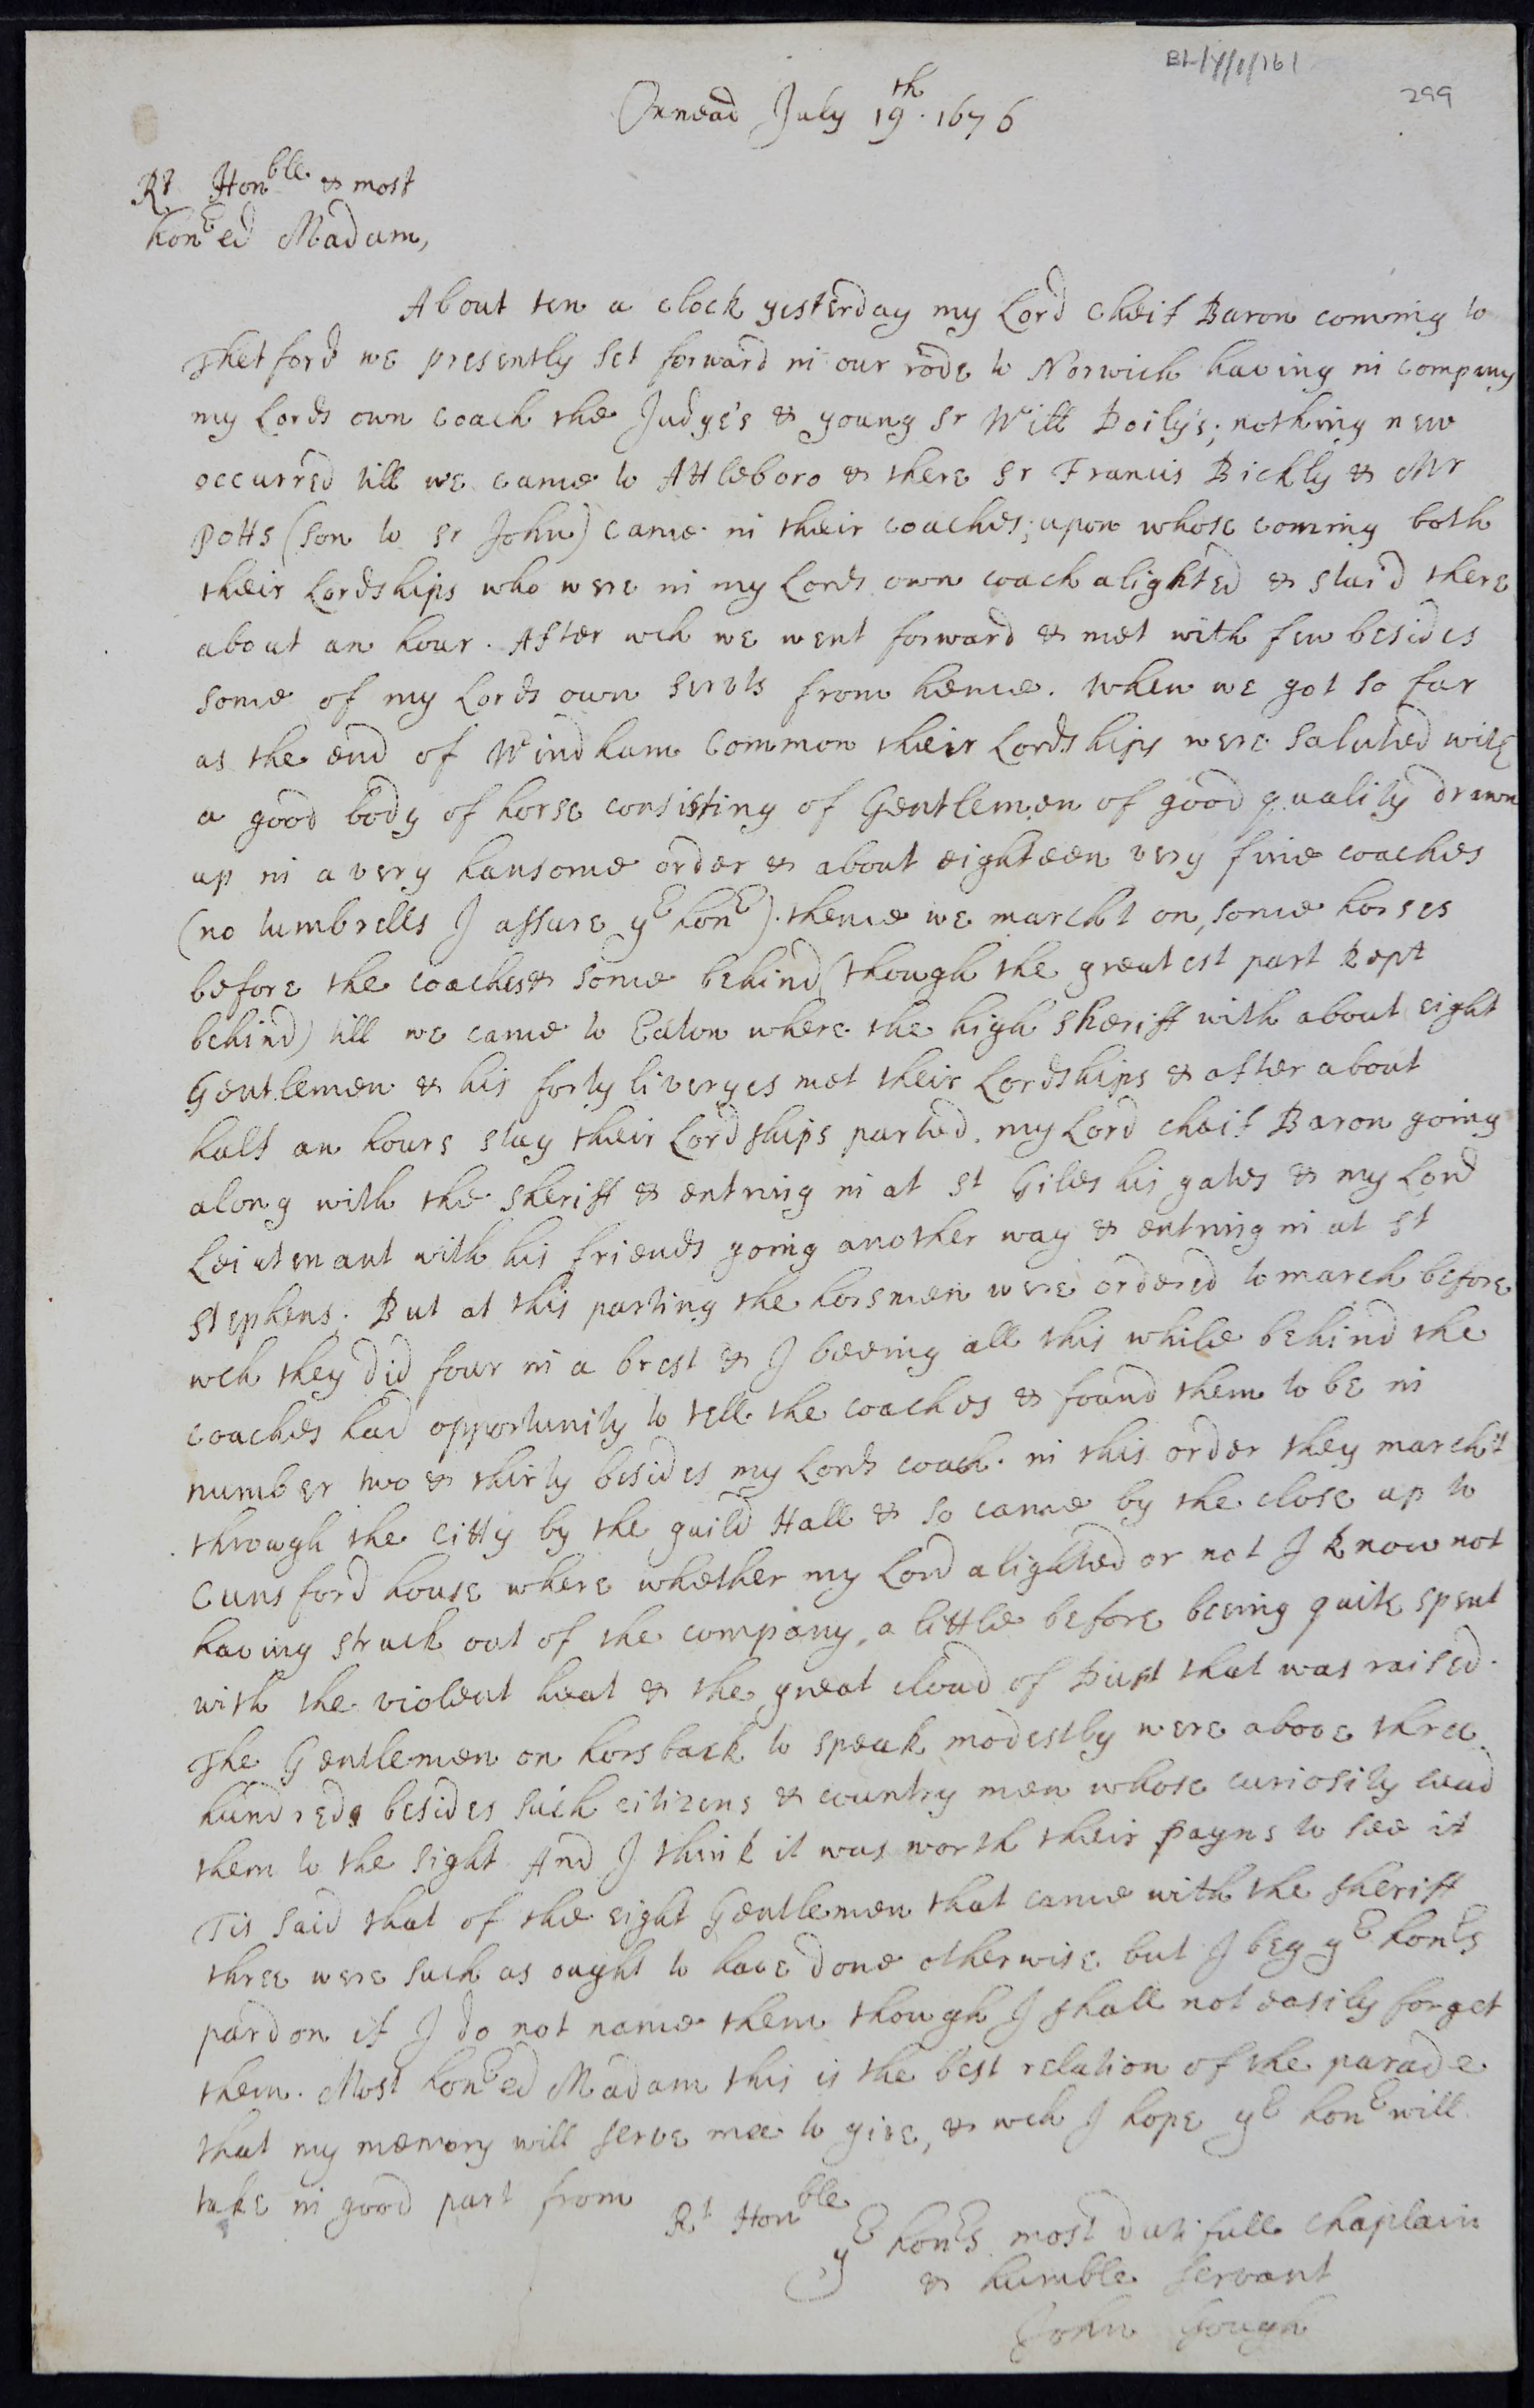 BL/Y/1/161
299
Oxnead July 19th. 1676
Rt Honble & most
honred Madam,
About ten a clock yesterday my Lord cheif Baron coming to
Thetford we presently set forward in our rode to Norwich having in company
my Lords own coach the Judge's & young Sr Will Doily's; nothing new
occurred till we came to Attleboro & there Sr Francis Bickly & Mr
Potts (son to Sr John) came in their coaches; upon whose coming both
their Lordships who were in my Lords own coach alighted & stai'd there
about an hour. After wch we went forward & met with few besides
some of my Lords own servts from hence. When we got so far
as the end of Windham Common their Lordships were saluted with
a good body of horse consisting of Gentlemen of good quality drawn
up in a very hansome order & about eighteen very fine coaches
(no tumbrells I assure yr honr). thence we marcht on, some horses
before the coaches & some behind (though the greatest part kept
behind) till we came to Eaton where the high Sheriff with about eight
Gentlemen & his forty liveryes met their Lordships & after about
half an hours stay their Lordships parted. my Lord cheif Baron going
along with the Sheriff & entring in at St Giles his gates & my Lord
Leiutenant with his friends going another way & entring in at St
Stephens. But at this parting the horsmen were ordered to march before
wch they did four in a brest & I beeing all this while behind the
coaches had opportunity to tell the coaches & found them to be in
number two & thirty besides my Lords coach. in this order they march't
through the Citty by the guild Hall & so came by the close up to
Cunsford house where whether my Lord alighted or not I know not
having struck out of the company, a little before beeing quite spent
with the violent heat & the great cloud of Dust that was raised.
The Gentlemen on horsback to speak modestly were above three
hundred besides such citizens & country men whose curiosity lead
them to the sight And I think it was worth their payns to see it
Tis said that of the eight Gentlemen that came with the sheriff
three were such as ought to have done otherwise but I beg yr honrs
pardon if I do not name them though I shall not easily forget
them. Most honred Madam this is the best relation of the parade
that my memory will serve mee to give, & wch I hope yr honr will
take in good part from
Rt Honble
yr honrs most dutifull chaplain
& humble servant
John Gough